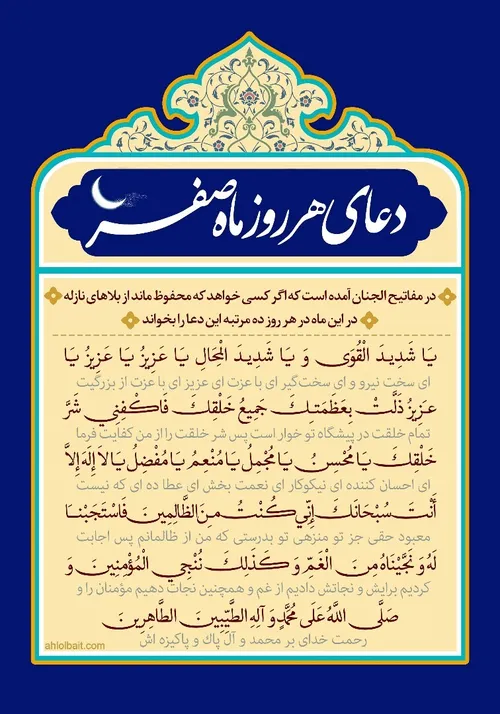 دعای هر روز ماه صفر
در مفاتیح الجنان آمده است که اگر کسی خواهد که محفوظ ماند از بلاهای نازله
در این ماه در هر روز ده مرتبه این دعا را بخواند
يَا شَدِيدَ الْقُوَى وَ يَا شَدِيدَ الْمِحَالِ يَا عَزِيزُ يَا عَزِيزُ يَا
ای سخت نیرو و ای سخت‌گیر ای با عزت ای عزیز ای با عزت از بزرگیت
عَزِيزُ ذَلَّتْ بِعَظَمَتِكَ جَمِيعُ خَلْقِكَ فَاكْفِنِي شَرَّ
تمام خلقت در پیشگاه تو خوار است پس شر خلقت را از من کفایت فرما
خَلْقِكَ يَا مُحْسِنُ يَا مُجْمِلُ يَا مُنْعِمُ يَا مُفْضِلُ يَا لا إِلَهَ إِلاَّ
ای احسان کننده ای نیکوکار ای نعمت بخش ای عطا ده ای که نیست
أَنْتَ سُبْحَانَكَ إِنِّي كُنْتُ مِنَ الظَّالِمِينَ فَاسْتَجَبْنَا
معبود حقی جز تو منزهی تو بدرستی که من از ظالمانم پس اجابت
لَهُ وَ نَجَّيْنَاهُ مِنَ الْغَمِّ وَ كَذَلِكَ نُنْجِي الْمُؤْمِنِينَ وَ
کردیم برایش و نجاتش دادیم از غم و همچنین نجات دهیم مؤمنان را و
صَلَّى اللَّهُ عَلَى مُحَمَّدٍ وَ آلِهِ الطَّيِّبِينَ الطَّاهِرِينَ
رحمت خدای بر محمد و آل پاك و پاکیزه اش
ahlolbait.com